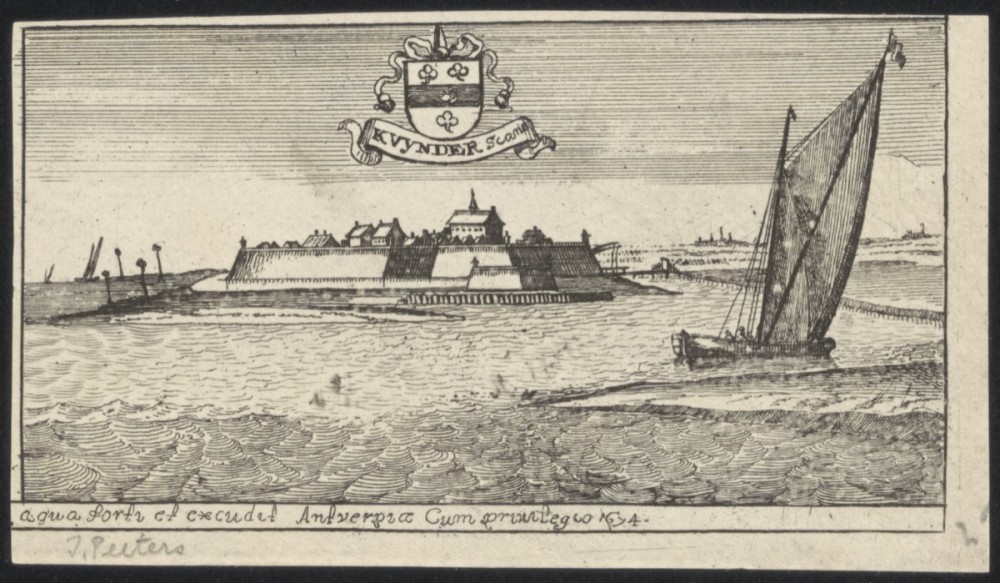 KVYNDER Scans
aqua forti et excudit Antverpiæ Cum privilegio 1674.
J. Peeters